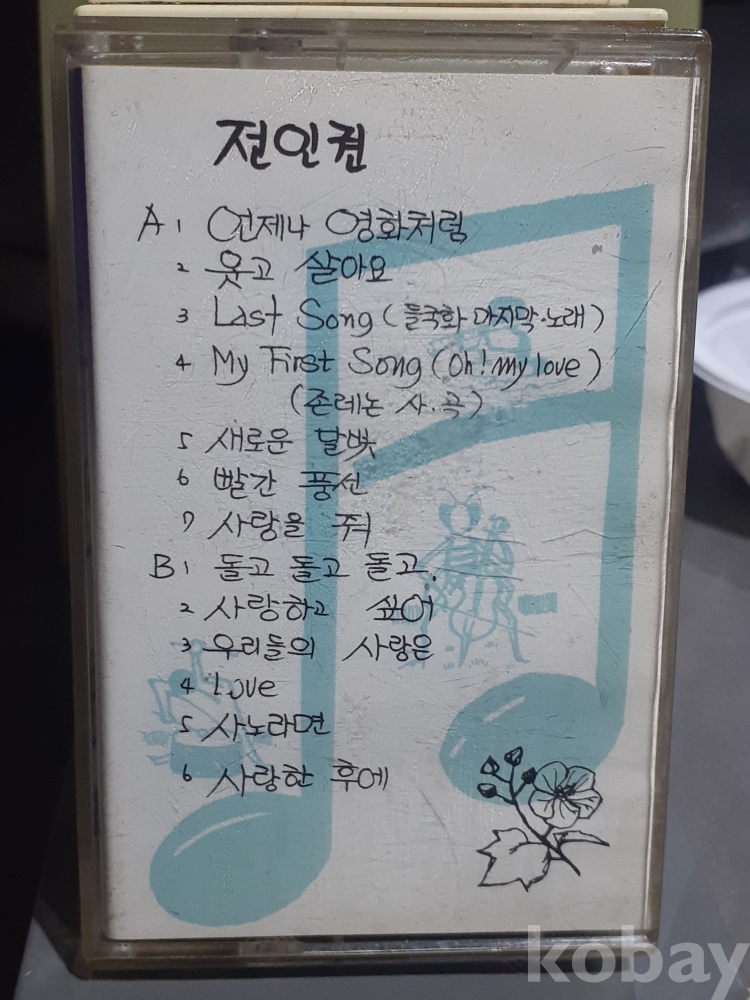 전인권
A 1 언제나 영화처럼
2 웃고 살아요
3 Last Song (들국화 마지막·노래)
4 My First Song (Oh! my love)
(존레논 사.곡)
5 새로운 달빛
6 빨간 풍선
7 사랑을 줘
B 1 돌고 돌고 돌고.
2 사랑하고 싶어
3 우리들의 사랑은
4 Love
5 사노라면
6 사랑한 후에
kobay